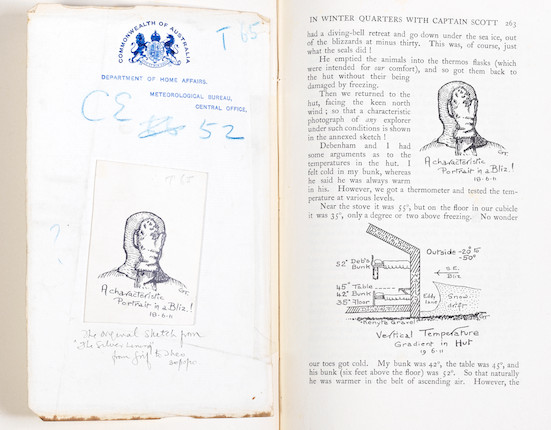 COMMONWEALTH OF AUSTRALIA
T 65
DEPARTMENT OF HOME AFFAIRS.
METEOROLOGICAL BUREAU,
CENTRAL OFFICE.
CE
52
T 65
A characteristic
Portrait in a Bliz.!
19.6.11
The original sketch from
"The Silver Lining"
from Grif to Theo
IN WINTER QUARTERS WITH CAPTAIN SCOTT 263
had a diving-bell retreat and go down under the sea ice, out
of the blizzards at minus thirty. This was, of course, just
what the seals did !
He emptied the animals into the thermos flasks (which
were intended for our comfort), and so got them back to
the hut without their being
damaged by freezing.
Then we returned to the
hut, facing the keen north
wind ; so that a characteristic
photograph of any explorer
under such conditions is shown
in the annexed sketch !
Debenham and I had
some arguments as to the
temperatures in the hut. I
felt cold in my bunk, whereas
he said he was always warm
in his. However, we got a thermometer and tested the tem-
perature at various levels.
A characteristic
Portrait in a Bliz.!
19-6-11
GT
Near the stove it was 55°, but on the floor in our cubicle
it was 35°, only a degree or two above freezing. No wonder
Outside -20°
-50°
52° Deb's
Bunk
S.E.
Bliz
45° Table
42° Bunk
35° Floor
Eddy
Snow
drift
Kenyte Gravel
Vertical Temperature
Gradient in Hut
19 6-11
our toes got cold. My bunk was 42°, the table was 45°, and
his bunk (six feet above the floor) was 52°. So that naturally
he was warmer in the belt of ascending air. However, the